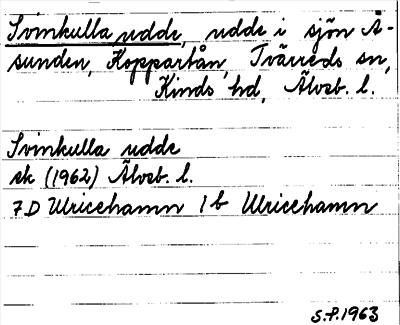 Svinkulla udde, udde i sjön Å-
sunden, Kopparbån, Tvärreds sn,
Kinds hd, Älvsb. l.
Svinkulla udde
sk (1962) Älvsb. l.
7 D Ulricehamn 1 b Ulricehamn
S.P. 1963